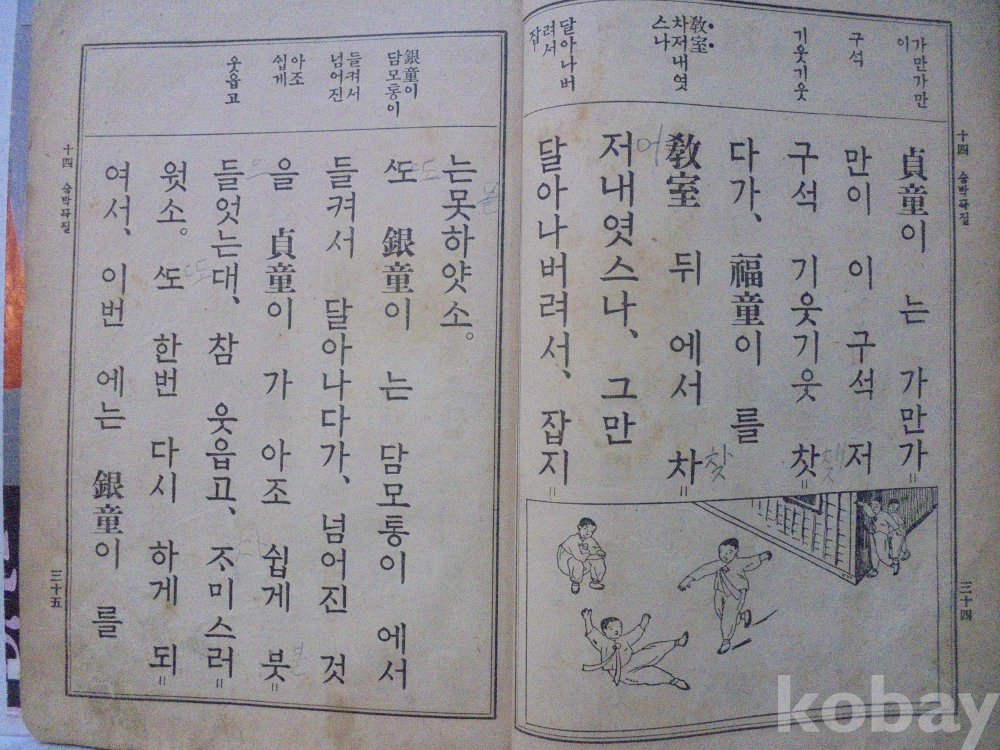 十四 숨박곡질
三十四
가만가만
이
구석
기웃기웃
敎室
차저내엿
스나
달아나버
려서
잡
貞童이 는 가만가〃
만이 이 구석 저
구석 기웃기웃 찻〃
다가、 福童이 를
敎室 뒤 에서 차〃
찾
저내엿스나、 그만
어
달아나버려서、 잡지〃
銀童이
담모통이
들켜서
넘어진
아조
쉽게
웃읍고
는못하얏소。
ᄯᅩ 銀童이 는 담모통이 에서
또
들켜서 달아나다가、 넘어진 것
을 貞童이 가 아조 쉽게 붓〃
으
들엇는대、 참 웃읍고、 ᄌᆞ미스러〃
웟소。 ᄯᅩ 한번 다시 하게 되〃
또
여서、 이번 에는 銀童이 를
十四 숨박곡질
三十五
kobay